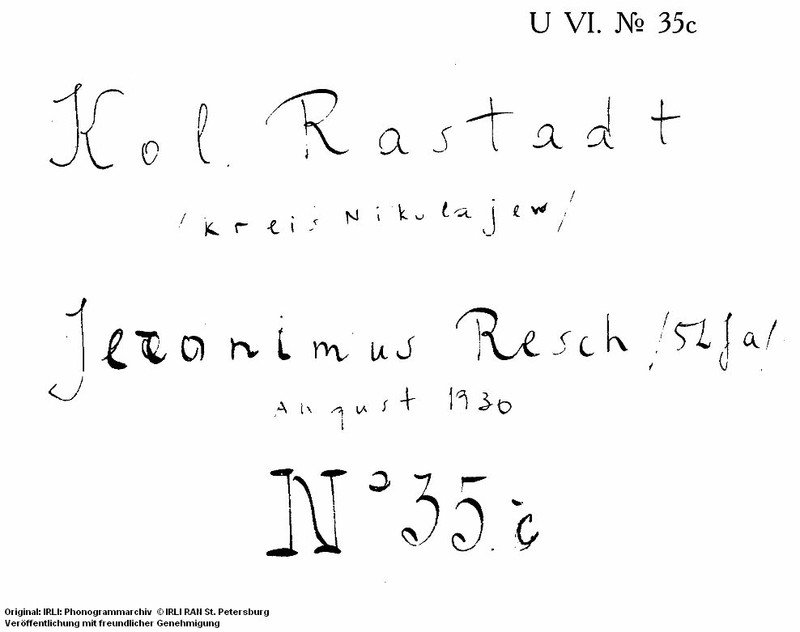 U VI. № 35c
Kol. Rastadt
/Kreis Nikulajew/
Jeronimus Resch /52 Ja/
August 1930
№ 35. c
Original: IRLI: Phonogrammarchiv © IRLI RAN St. Petersburg
Veröffentlichung mit freundlicher Genehmigung